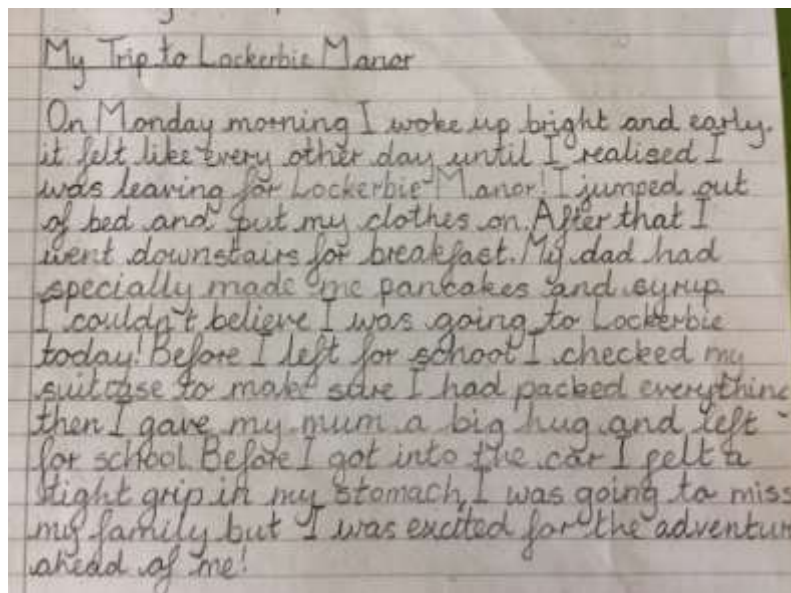 My Trip to Lockerbie Manor
On Monday morning I woke up bright and early.
it felt like every other day until I realised I
was leaving for Lockerbie Manor! I jumped out
of bed and put my clothes on. After that I
went downstairs for breakfast. My dad had
specially made me pancakes and syrup.
I couldn't believe I was going to Lockerbie
today! Before I left for school I checked my
suitcase to make sure I had packed everything
then I gave my mum a big hug and left
for school. Before I got into the car I felt a
tight grip in my stomach, I was going to miss
my family but I was excited for the adventur
ahead of me!